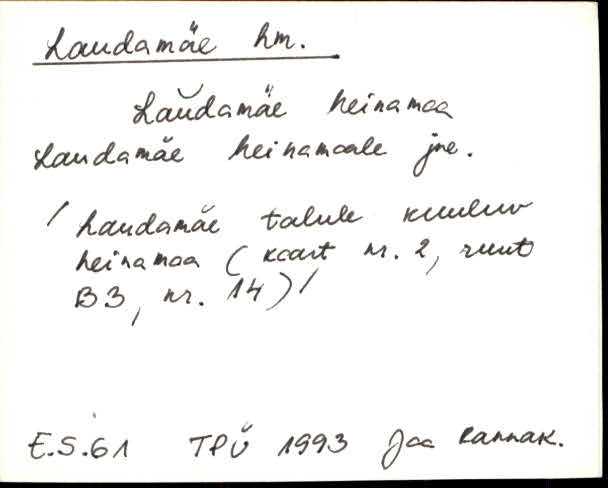 Laudamäe hm.
Lau̮damäe heinamaa
Laudamäe heinamaale jne.
/ Laudamäe talule kuuluv
heinamaa (kaart nr. 2, ruut
B3, nr. 14) /
E.S.61 TPÜ 1993 Jaa Rannak.